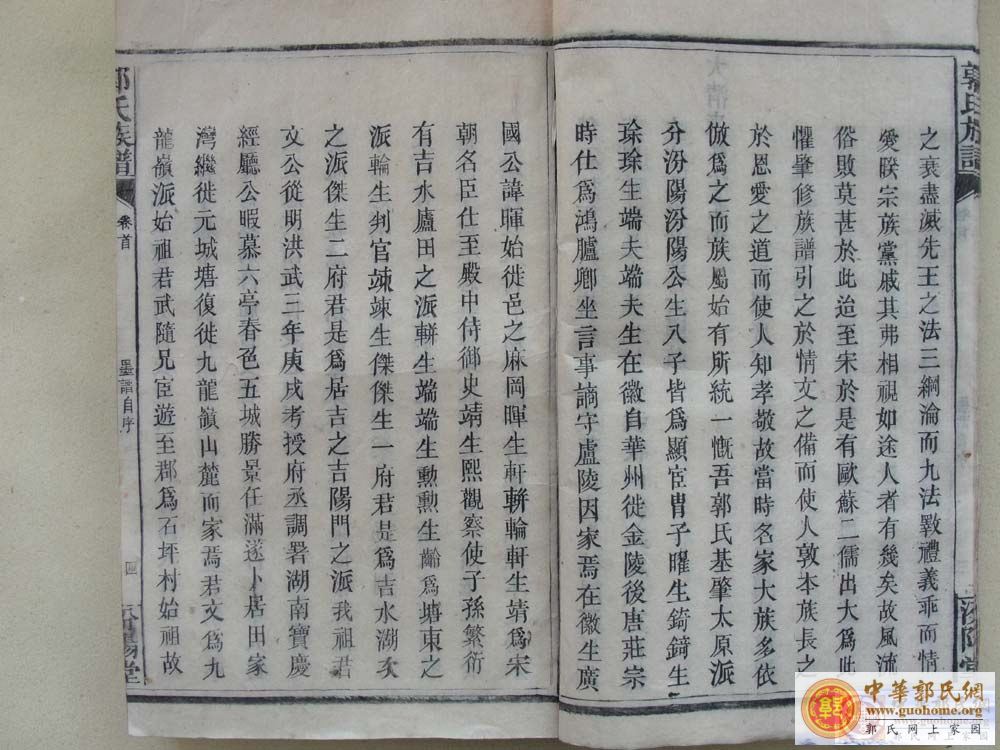 郭氏族譜
之衰盡滅先王之法三綱淪而九法斁禮義乖而情
愛睽宗族黨戚其弗相視如途人者有幾矣故風流
俗敗莫甚於此迨至宋於是有歐蘇二儒出大為此
懼肇修族譜引之於情文之備而使人敦本族長之
於恩愛之道而使人知孝敬故當時名家大族多依
倣為之而族屬始有所統一慨吾郭氏基肇太原派
分汾陽汾陽公生八子皆為顯宦冑子曜生錡錡生
琭琭生端夫端夫生在徽自華州徙金陵後唐莊宗
時仕為鴻臚卿坐言事謫守廬陵因家焉在徽生廣
汾陽堂
國公諱暉始徙邑之麻岡暉生軒輧輪軒生靖為宋
朝名臣仕至殿中侍御史靖生熙觀察使子孫繁衍
有吉水廬田之派輧生端端生勲勲生齡為塘東之
派輪生判官竦竦生傑傑生一府君是為吉水湖次
之派傑生二府君是為居吉之吉陽門之派我祖君
文公從明洪武三年庚戌考授府丞調署湖南寶慶
經廳公暇慕六亭春色五城勝景任滿遂卜居田家
灣繼徙元城塘復徙九龍嶺山麓而家焉君文為九
龍嶺派始祖君武隨兄宦遊至郡為石坪村始祖故
郭氏族譜
卷首
墨譜自序
四
汾陽堂
中華郭氏網
www.guohome.org
郭氏网上家园